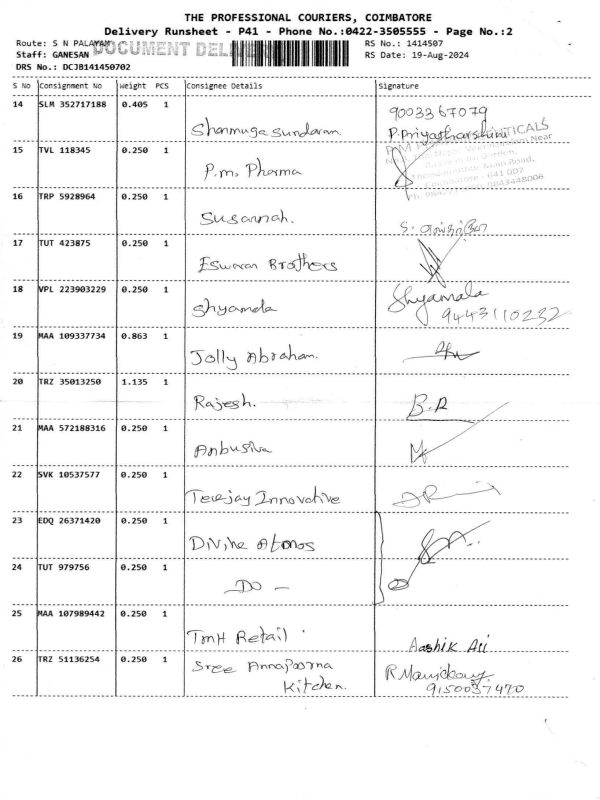 THE PROFESSIONAL COURIERS, COIMBATORE
Delivery Runsheet - P41 - Phone No.:0422-3505555 - Page No.:2
Route: S N PALAYAM
DOCUMENT DEL
RS No.: 1414507
Staff: GANESAN
RS Date: 19-Aug-2024
DRS No.: DCJB141450702
S No Consignment No Weight PCS Consignee Details Signature
14 SLM 352717188 0.405 1
9003367079
Shanmuga sundaram P.Priyatharshini
15 TVL 118345 0.250 1
P.m. Pharma
16 TRP 5928964 0.250 1
Susannah.
17 TUT 423875 0.250 1
Eswaran Brothers
18 VPL 223903229 0.250 1
Shyamala Shyamala
9443110232
19 MAA 109337734 0.863 1
Jolly Abraham.
20 TRZ 35013250 1.135 1
Rajesh. B.R
21 MAA 572188316 0.250 1
Anbusiva
22 SVK 10537577 0.250 1
Teejay Innovative
23 EDQ 26371420 0.250 1
Divine Atmos
24 TUT 979756 0.250 1
- DO -
25 MAA 107989442 0.250 1
TMH Retail Aashik Ali
26 TRZ 51136254 0.250 1
Sree Annapoorna
Kitchen. 9150037470